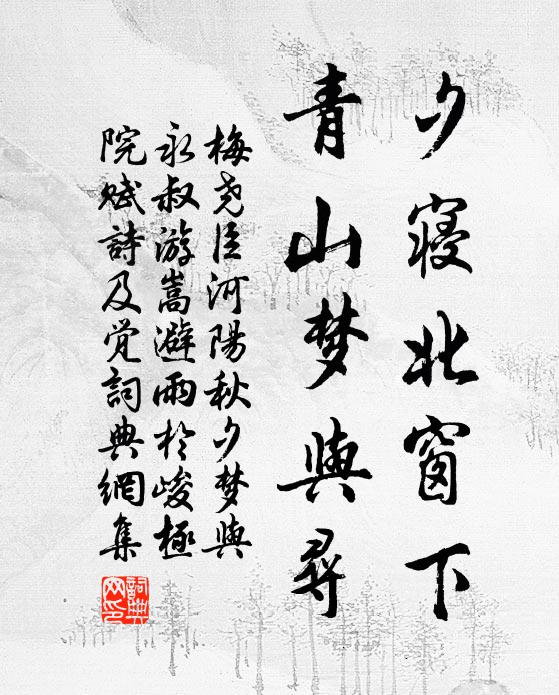 夕寝北窗下
青山梦與尋
梅尧臣河陽秋夕梦與
永叔游嵩避雨於峻極
院赋詩及觉詞典網集
詞典
网印